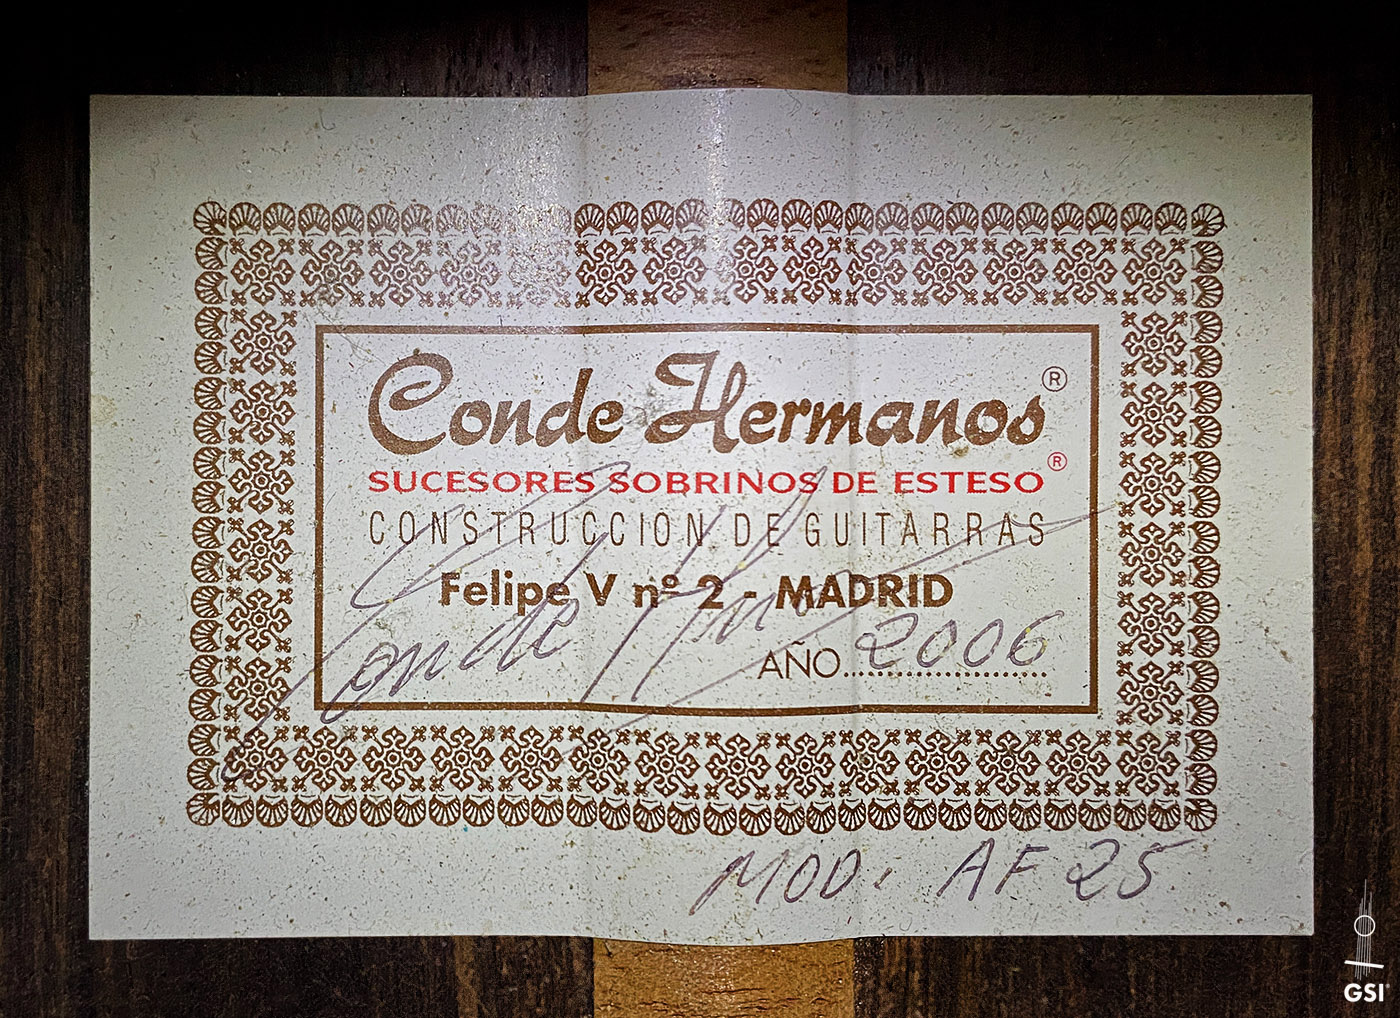 Conde Hermanos®
SUCESORES SOBRINOS DE ESTESO®
CONSTRUCCION DE GUITARRAS
Felipe V nº 2 - MADRID
Conde Hnos
AÑO 2006
MOD. AF 25
GSI